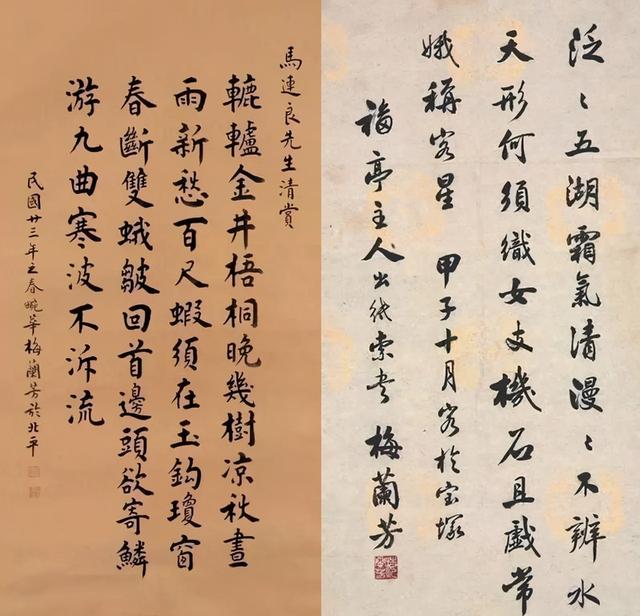 馬連良先生清賞
轆轤金井梧桐晚幾樹凉秋晝
雨新愁百尺蝦須在玉鈎瓊窗
春斷雙蛾皺回首邊頭欲寄鱗
游九曲寒波不泝流
民國廿三年之春畹華梅蘭芳於北平
泛〻五湖霜氣清漫〻不辨水
天形何須織女支機石且戲常
娥稱客星 甲子十月客於宝塚
福亭主人出紙索书 梅蘭芳